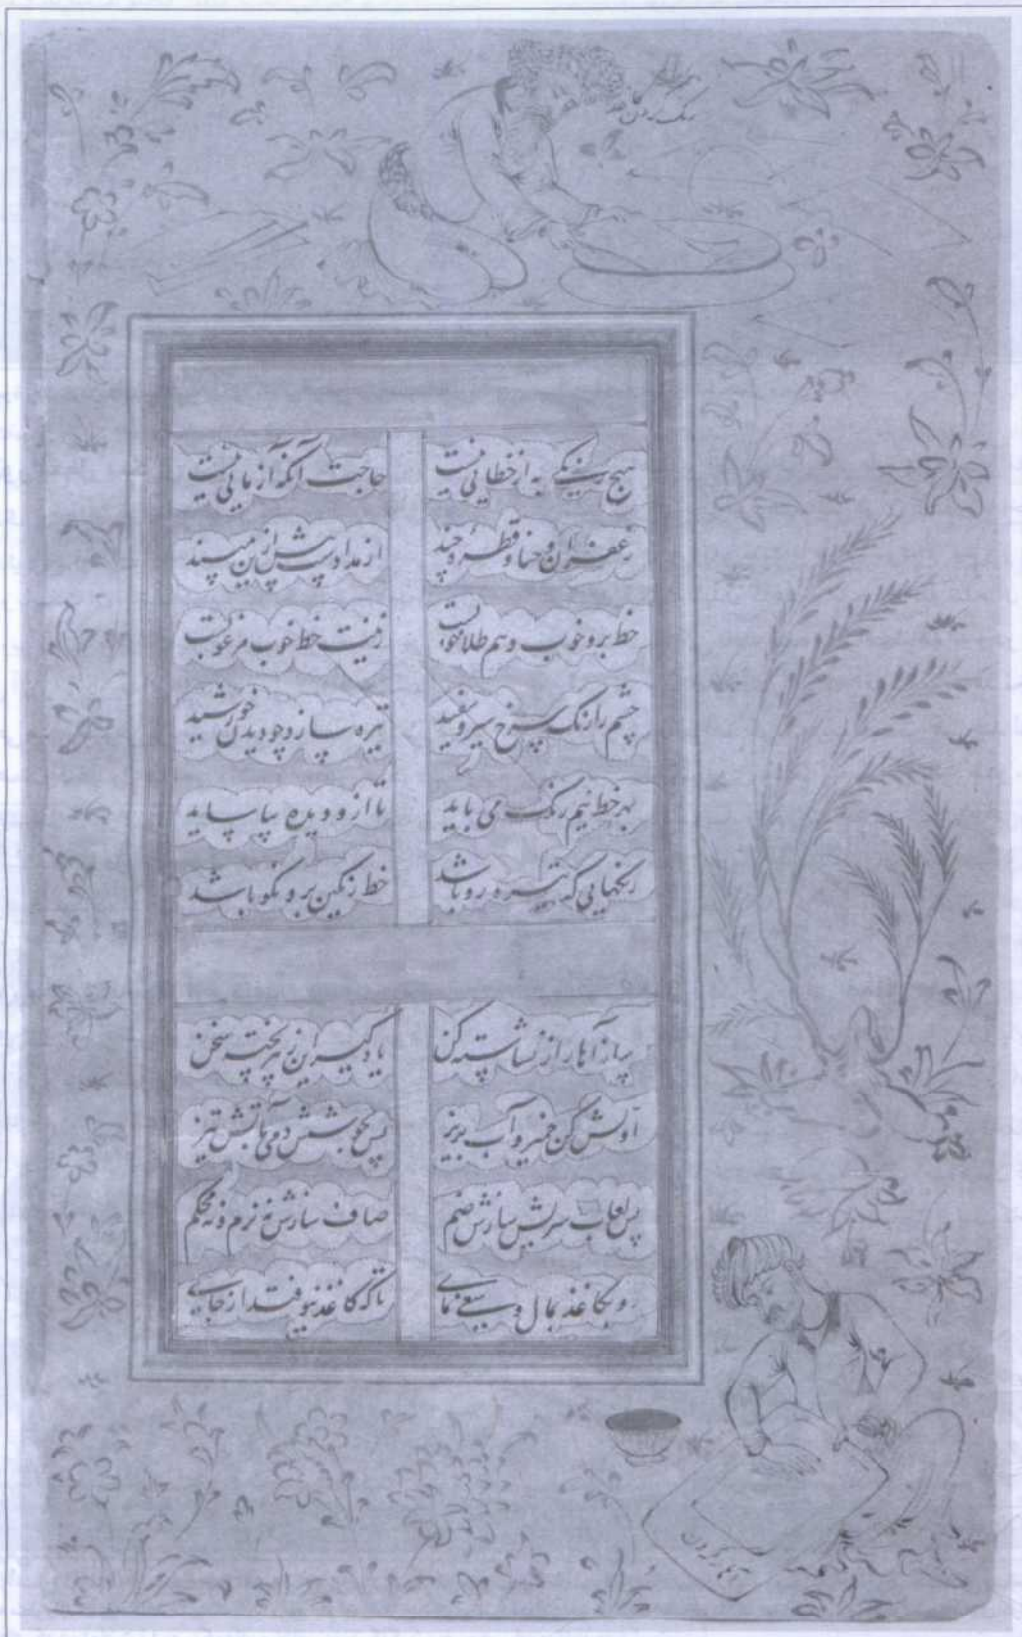 رنگ کردن کاغذ
هیچ رنگی به از خطائی نیست حاجت آنکه آزمائی نیست
زعفران و حنا و قطرهٔ چند از مداد ست بیش ازین مپسند
خط برو خوب و هم طلا خوبست زینت خط خوب مرغوبست
چشم را رنگ سرخ و سبز و سفید تیره سازد چو دیدن خورشید
بهر خط نیم رنگ می باید تا ازو دیده بیاساید
رنگهایی که تیره رو باشد خط رنگین برو نکو باشد
ساز آهار از نشاسته کن یاد گیر این ز پیر پخته سخن
اولش کن خمیر و آب بریز پس بجوشش دمی بآتش تیز
پس لعاب سریش سازش ضم صاف سازش نه نرم و نه محکم
رو بکاغذ بمال و سعی نمای تا که کاغذ نیوفتد از جای
کردن